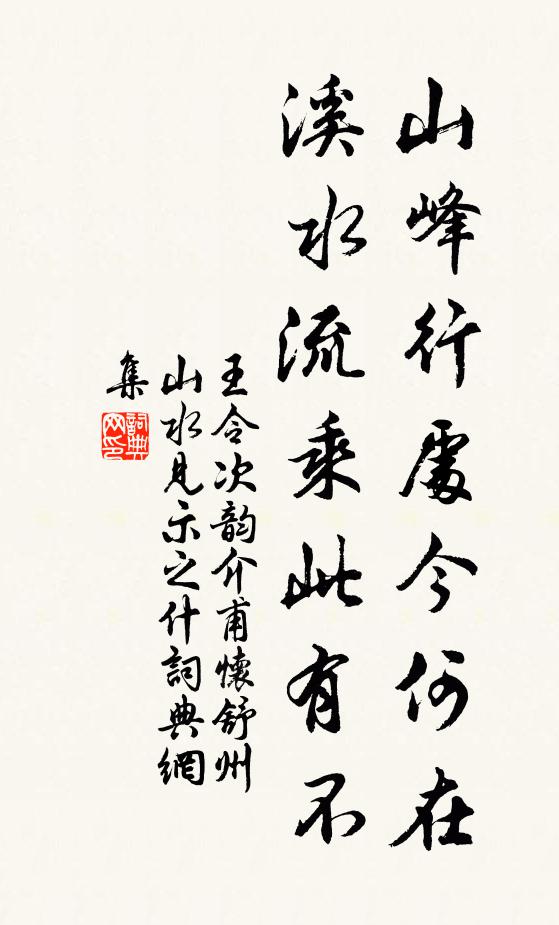 山峰行處今何在
溪水流乘此有不
王令次韵介甫懷舒州
山水見示之什詞典網
集
詞典
网印